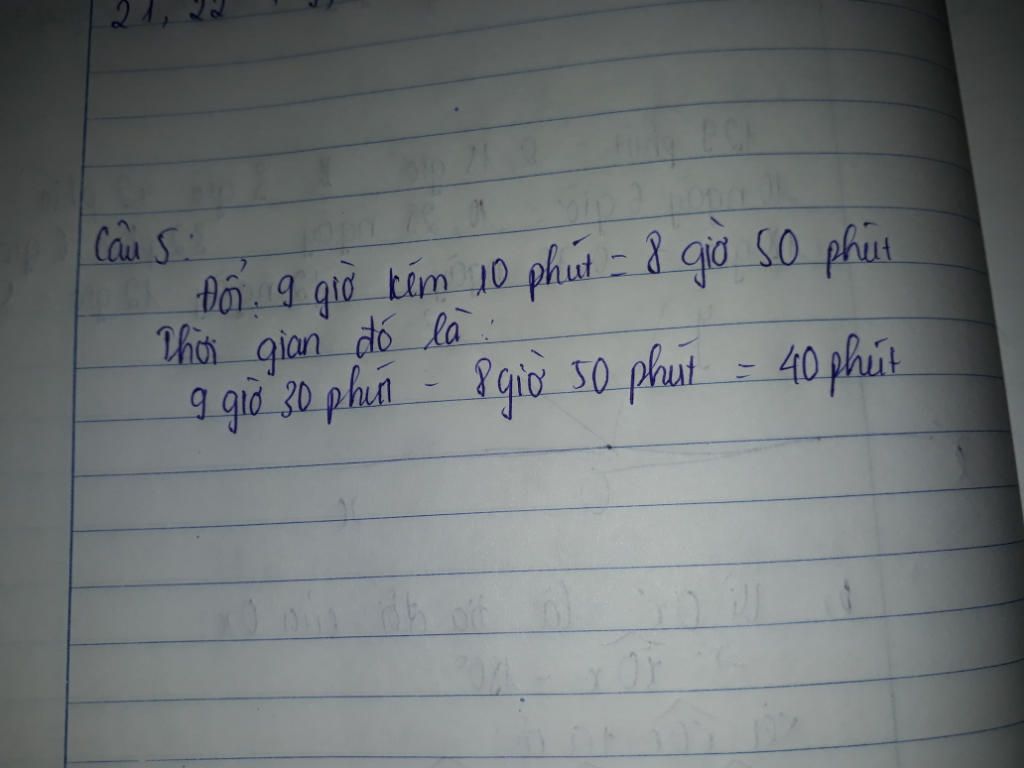 21, 22
Câu 5:
Đổi: 9 giờ kém 10 phút = 8 giờ 50 phút
Thời gian đó là:
9 giờ 30 phút - 8 giờ 50 phút = 40 phút